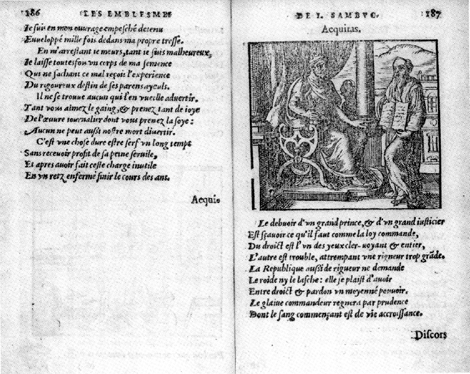 186 LES EMBLESMES
Je suis en mon ouvrage empesché detenu
Enveloppé mille fois dedans ma propre trosse.
En m'arrestant ie meurs, tant ie suis malheureux,
Je laisse toutesfois un corps de ma semence
Qui ne sachant ce mal reçoit l'experience
Du rigoureux destin de ses parens ayeuls.
Il ne se trouve aucun qui l'en vueille advertir.
Tant vous aimez le gaing, & prenez tant de ioye
De l'œuvre tournoier dont vous prenez la soye:
Aucun ne peut aussi nostre mort divertir.
C'est une chose dure estre serf un long temps
Sans recevoir profit de sa peine servile,
Et apres avoir fait ceste charge inutile
En un retz enfermé finir le cours des ans.
Aequi-
DE I. SAMBVC. 187
Aequitas.
Le debvoir d'un grand prince, & d'un grand iusticier
Est sçavoir ce qu'il faut comme la loy commande,
Du droict est l'un des yeux cler-voyant & entier,
L'autre est trouble, attrempant une rigueur trop grãde.
La Republique aussi de rigueur ne demande
Le roide ny le lasche: elle se plaist d'avoir
Entre droict & pardon un moyenné pouvoir.
Le glaive commandeur regnera par prudence
Dont le sang commençant est de vie accroissance.
Discors